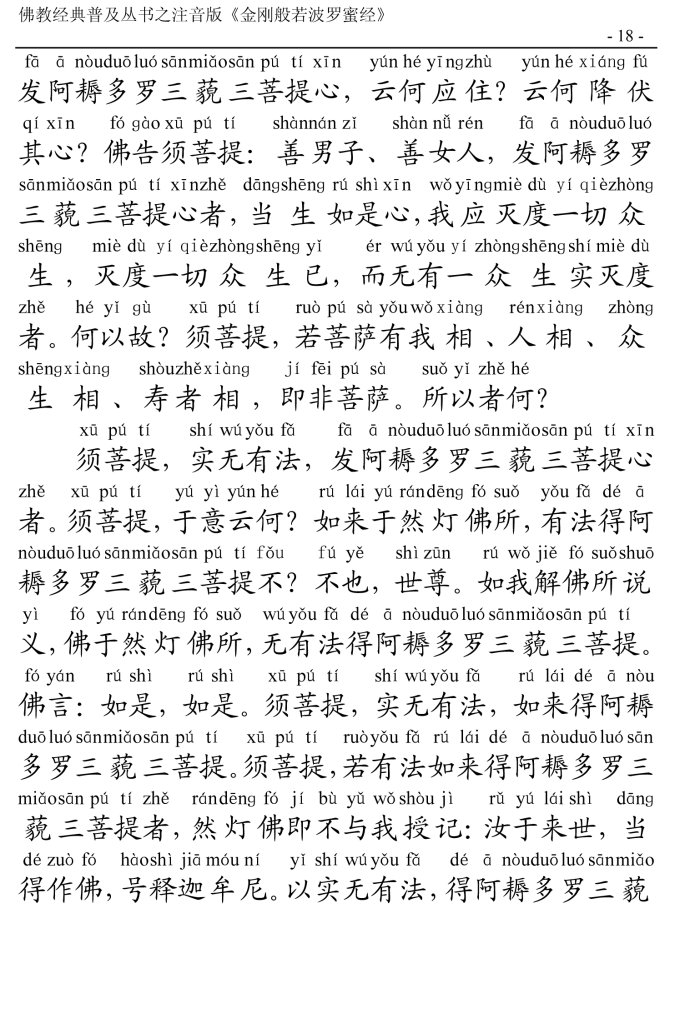 佛教经典普及丛书之注音版《金刚般若波罗蜜经》
- 18 -
fā ā nòuduōluósānmiǎosān pú tí xīn yún hé yīngzhù yún hé xiáng fú
发阿耨多罗三藐三菩提心，云何应住？云何降伏
qí xīn fó gào xū pú tí shànnán zǐ shàn nǚ rén fā ā nòuduōluó
其心？佛告须菩提：善男子、善女人，发阿耨多罗
sānmiǎosān pú tí xīnzhě dāngshēng rú shì xīn wǒ yīngmiè dù yí qièzhòng
三藐三菩提心者，当生如是心，我应灭度一切众
shēng miè dù yí qièzhòngshēng yǐ ér wú yǒu yí zhòngshēngshí miè dù
生，灭度一切众生已，而无有一众生实灭度
zhě hé yǐ gù xū pú tí ruò pú sà yǒu wǒ xiàng rén xiàng zhòng
者。何以故？须菩提，若菩萨有我相、人相、众
shēngxiàng shòuzhěxiàng jí fēi pú sà suǒ yǐ zhě hé
生相、寿者相，即非菩萨。所以者何？
xū pú tí shí wú yǒu fǎ fā ā nòuduōluósānmiǎosān pú tí xīn
须菩提，实无有法，发阿耨多罗三藐三菩提心
zhě xū pú tí yú yì yún hé rú lái yú rándēng fó suǒ yǒu fǎ dé ā
者。须菩提，于意云何？如来于然灯佛所，有法得阿
nòuduōluósānmiǎosān pú tí fǒu fú yě shì zūn rú wǒ jiě fó suǒshuō
耨多罗三藐三菩提不？不也，世尊。如我解佛所说
yì fó yú rándēng fó suǒ wú yǒu fǎ dé ā nòuduōluósānmiǎosān pú tí
义，佛于然灯佛所，无有法得阿耨多罗三藐三菩提。
fó yán rú shì rú shì xū pú tí shí wú yǒu fǎ rú lái dé ā nòu
佛言：如是，如是。须菩提，实无有法，如来得阿耨
duōluósānmiǎosān pú tí xū pú tí ruò yǒu fǎ rú lái dé ā nòuduōluósān
多罗三藐三菩提。须菩提，若有法如来得阿耨多罗三
miǎosān pú tí zhě rándēng fó jí bù yǔ wǒ shòu jì rǔ yú lái shì dāng
藐三菩提者，然灯佛即不与我授记：汝于来世，当
dé zuò fó hào shì jiā móu ní yǐ shí wú yǒu fǎ dé ā nòuduōluósānmiǎo
得作佛，号释迦牟尼。以实无有法，得阿耨多罗三藐